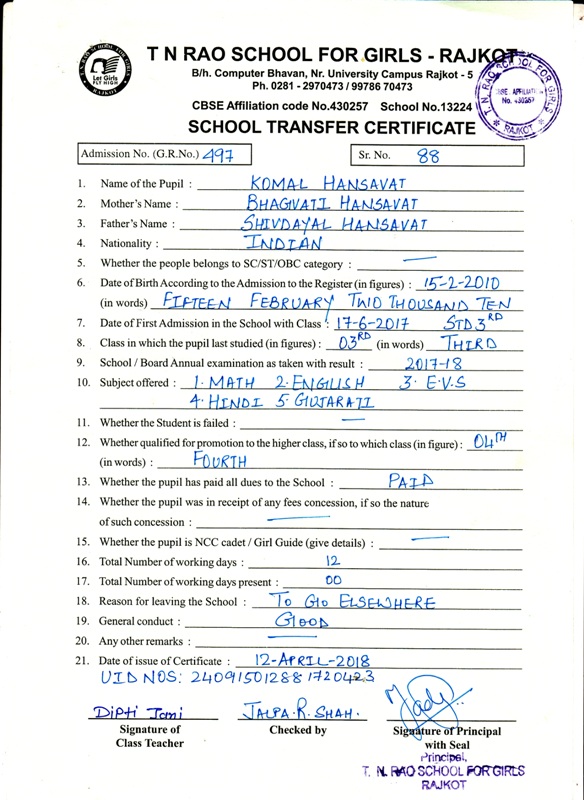 T N RAO SCHOOL FOR GIRLS - RAJKOT
B/h. Computer Bhavan, Nr. University Campus Rajkot - 5
Ph. 0281 - 2970473 / 99786 70473
CBSE Affiliation code No.430257 School No.13224
Let Girls
FLY HIGH
RAJKOT
T. N. RAO SCHOOL FOR GIRLS
CBSE AFFILIATION
No. 430257
RAJKOT
SCHOOL TRANSFER CERTIFICATE
Admission No. (G.R.No.) 497 Sr. No. 88
1. Name of the Pupil : KOMAL HANSAVAT
2. Mother's Name : BHAGWATI HANSAVAT
3. Father's Name : SHIVDAYAL HANSAVAT
4. Nationality : INDIAN
5. Whether the people belongs to SC/ST/OBC category : —
6. Date of Birth According to the Admission to the Register (in figures) : 15-2-2010
(in words) FIFTEEN FEBRUARY TWO THOUSAND TEN
7. Date of First Admission in the School with Class : 17-6-2017 STD 3RD
8. Class in which the pupil last studied (in figures) : 03RD (in words) THIRD
9. School / Board Annual examination as taken with result : 2017-18
10. Subject offered : 1. MATH 2. ENGLISH 3. E.V.S
4. HINDI 5. GUJARATI
11. Whether the Student is failed : —
12. Whether qualified for promotion to the higher class, if so to which class (in figure) : 04TH
(in words) : FOURTH
13. Whether the pupil has paid all dues to the School : PAID
14. Whether the pupil was in receipt of any fees concession, if so the nature
of such concession : —
15. Whether the pupil is NCC cadet / Girl Guide (give details) : —
16. Total Number of working days : 12
17. Total Number of working days present : 00
18. Reason for leaving the School : TO GO ELSEWHERE
19. General conduct : GOOD
20. Any other remarks : —
21. Date of issue of Certificate : 12-APRIL-2018
UID NOS: 240915012881720423
Dipti Jani JALPA.R.SHAH.
Signature of Checked by Signature of Principal
Class Teacher with Seal
Principal,
T. N. RAO SCHOOL FOR GIRLS
RAJKOT